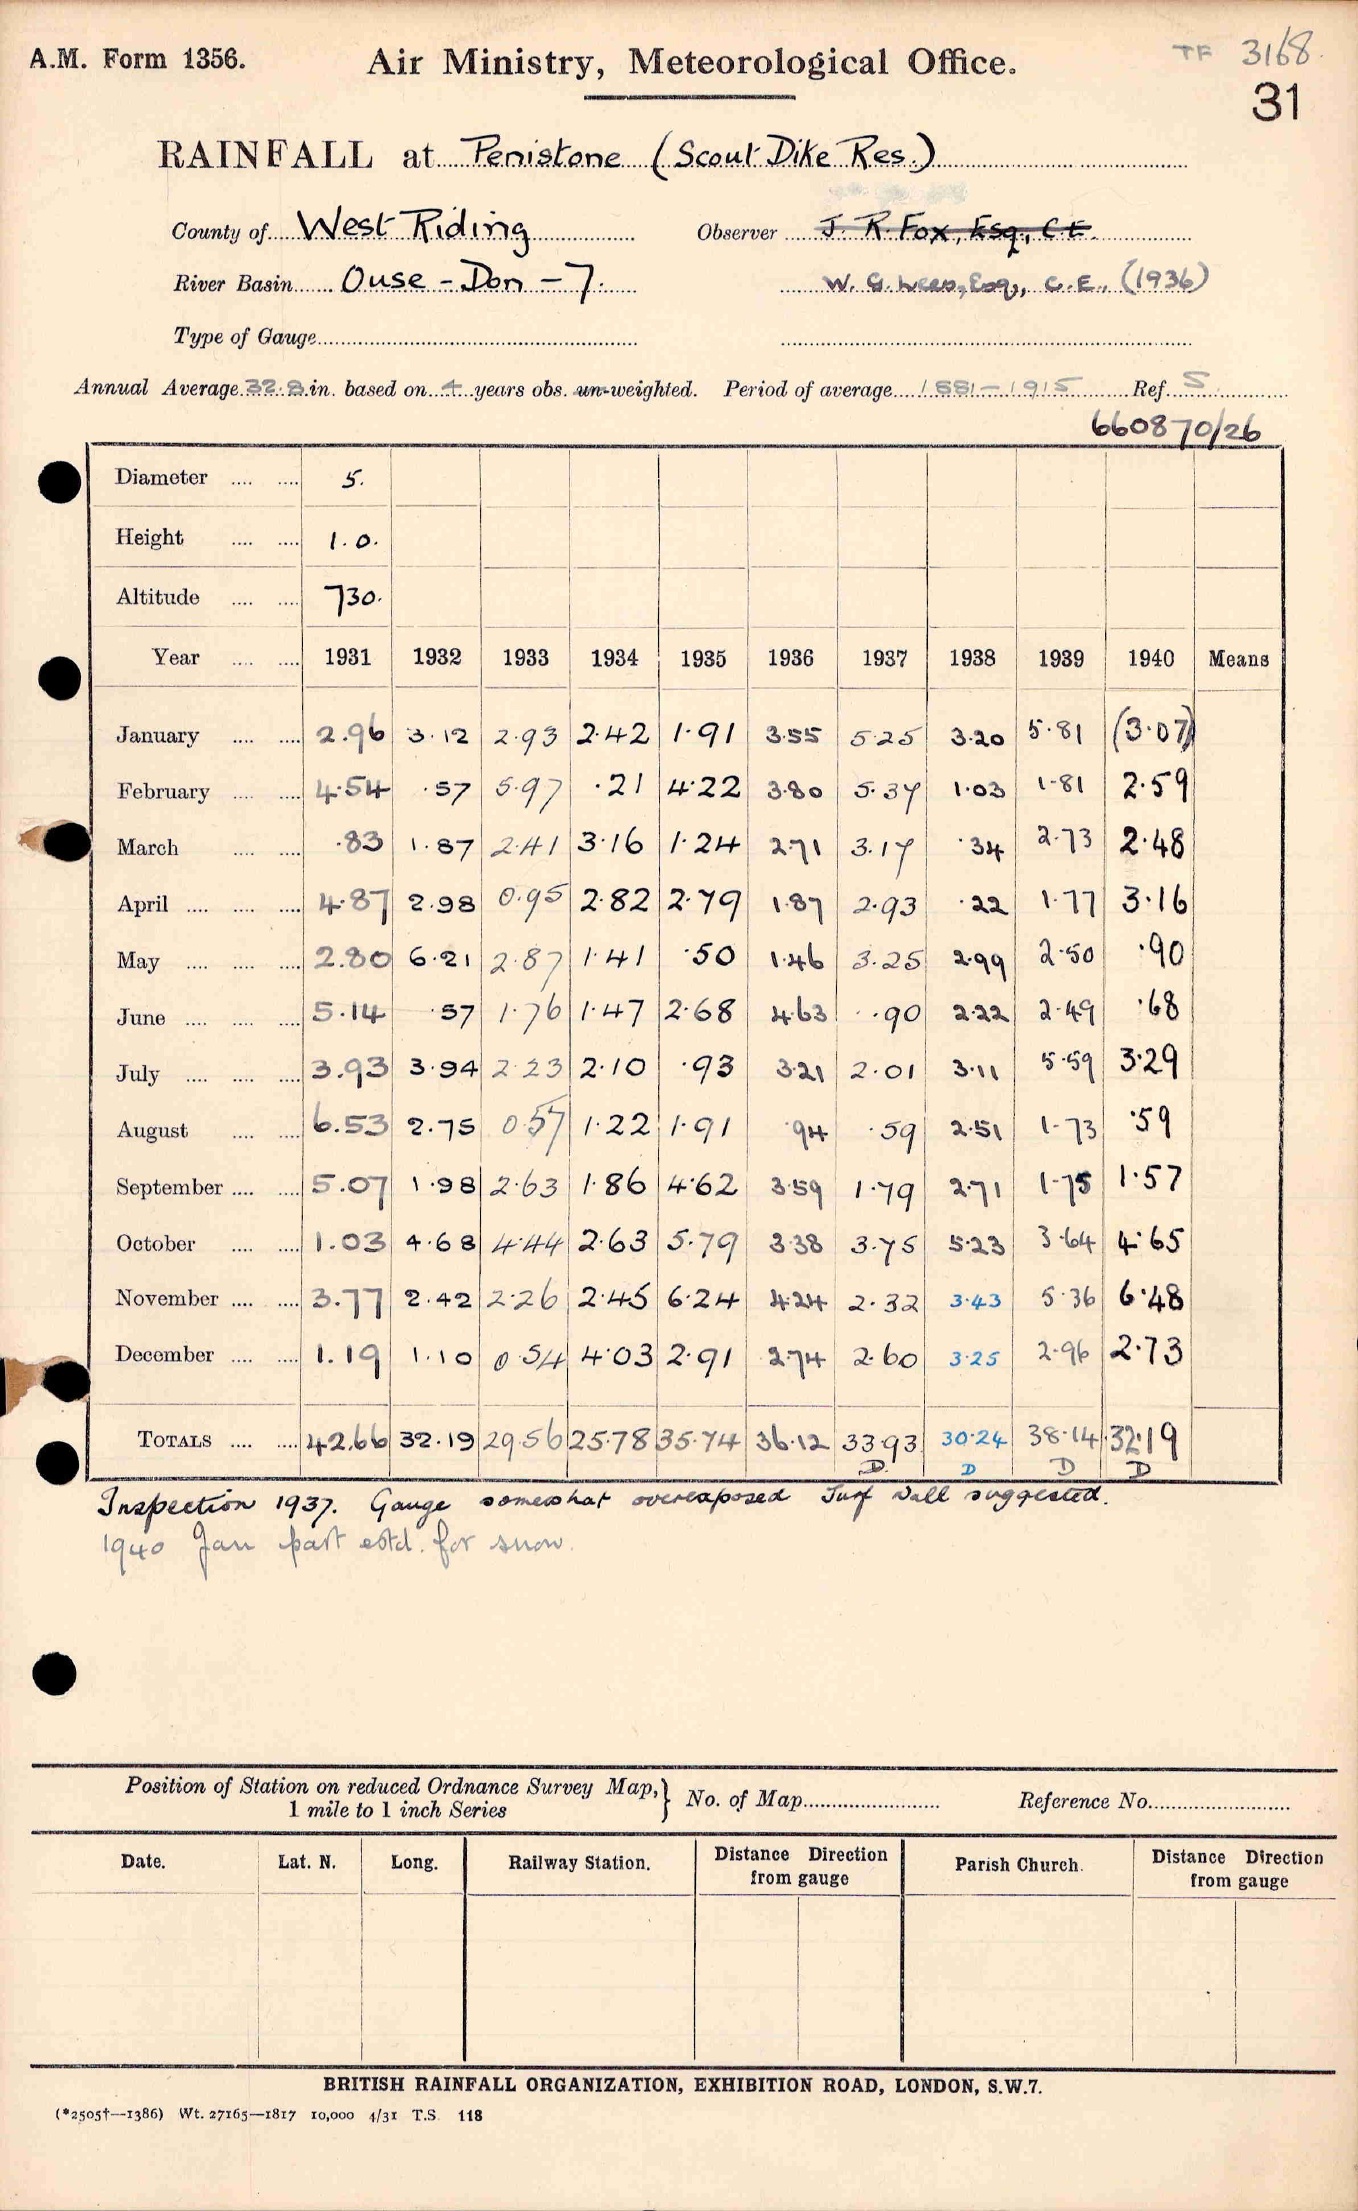 A.M. Form 1356.
Air Ministry, Meteorological Office.
TF 3168.
31
RAINFALL at Penistone (Scout Dike Res.)
County of West Riding Observer J. R. Fox, Esq., C.E.
River Basin Ouse - Don - 7. W. G. Lees, Esq., C.E., (1936)
Type of Gauge
Annual Average 32.8 in. based on 4 years obs. un-weighted. Period of average 1881-1915 Ref. S
660870/26
Diameter .... .... 5.
Height .... .... 1.0.
Altitude .... .... 730.
Year .... .... 1931 1932 1933 1934 1935 1936 1937 1938 1939 1940 Means
January .... .... 2.96 3.12 2.93 2.42 1.91 3.55 5.25 3.20 5.81 (3.07)
February .... .... 4.54 .57 5.97 .21 4.22 3.80 5.37 1.03 1.81 2.59
March .... .... .83 1.87 2.41 3.16 1.24 2.71 3.17 .34 2.73 2.48
April .... .... .... 4.87 2.98 0.95 2.82 2.79 1.87 2.93 .22 1.77 3.16
May .... .... .... 2.80 6.21 2.87 1.41 .50 1.46 3.25 2.99 2.50 .90
June .... .... .... 5.14 .57 1.76 1.47 2.68 4.63 .90 2.22 2.49 .68
July .... .... .... 3.93 3.94 2.23 2.10 .93 3.21 2.01 3.11 5.59 3.29
August .... .... 6.53 2.75 0.57 1.22 1.91 .94 .59 2.51 1.73 .59
September .... .... 5.07 1.98 2.63 1.86 4.62 3.59 1.79 2.71 1.75 1.57
October .... .... 1.03 4.68 4.44 2.63 5.79 3.38 3.75 5.23 3.64 4.65
November .... .... 3.77 2.42 2.26 2.45 6.24 4.24 2.32 3.43 5.36 6.48
December .... .... 1.19 1.10 0.54 4.03 2.91 2.74 2.60 3.25 2.96 2.73
TOTALS .... .... 42.66 32.19 29.56 25.78 35.74 36.12 33.93 30.24 38.14 32.19
D. D D D
Inspection 1937. Gauge somewhat overexposed Turf Wall suggested.
1940 Jan part estd. for snow.
Position of Station on reduced Ordnance Survey Map, } No. of Map Reference No.
1 mile to 1 inch Series
Date. Lat. N. Long. Railway Station. Distance Direction from gauge Parish Church. Distance Direction from gauge
BRITISH RAINFALL ORGANIZATION, EXHIBITION ROAD, LONDON, S.W.7.
(*2505†—1386) Wt. 27165—1817 10,000 4/31 T.S. 118